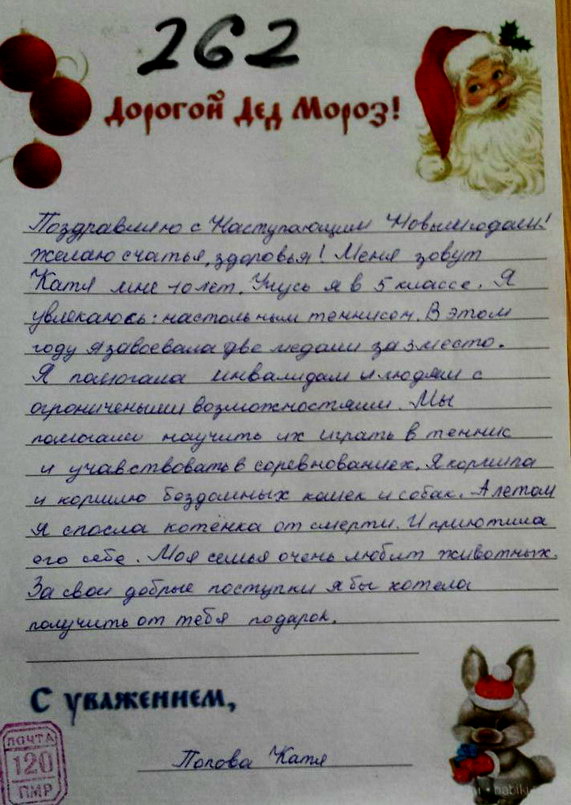 262
Дорогой Дед Мороз!
Поздравляю с Наступающим Новымгодом!
желаю счатья, здоровья! Меня зовут
Катя мне 10 лет. Учусь я в 5 классе. Я
увлекаюсь: настольным теннисом. В этом
году я завоевала две медали за 3 место.
Я помогала инвалидам и людям с
ограничеными возможностями. Мы
помогали научить их играть в теннис
и учавствовать в соревнованиех. Я кормила
и кормлю бездомных кошек и собак. А летом
я спосла котёнка от смерти. И приютила
его себе. Моя семья очень любит животных.
За свои добрые поступки я бы хотела
получить от тебя подарок.
С уважением,
Попова Катя
ПОЧТА
120
ПМР